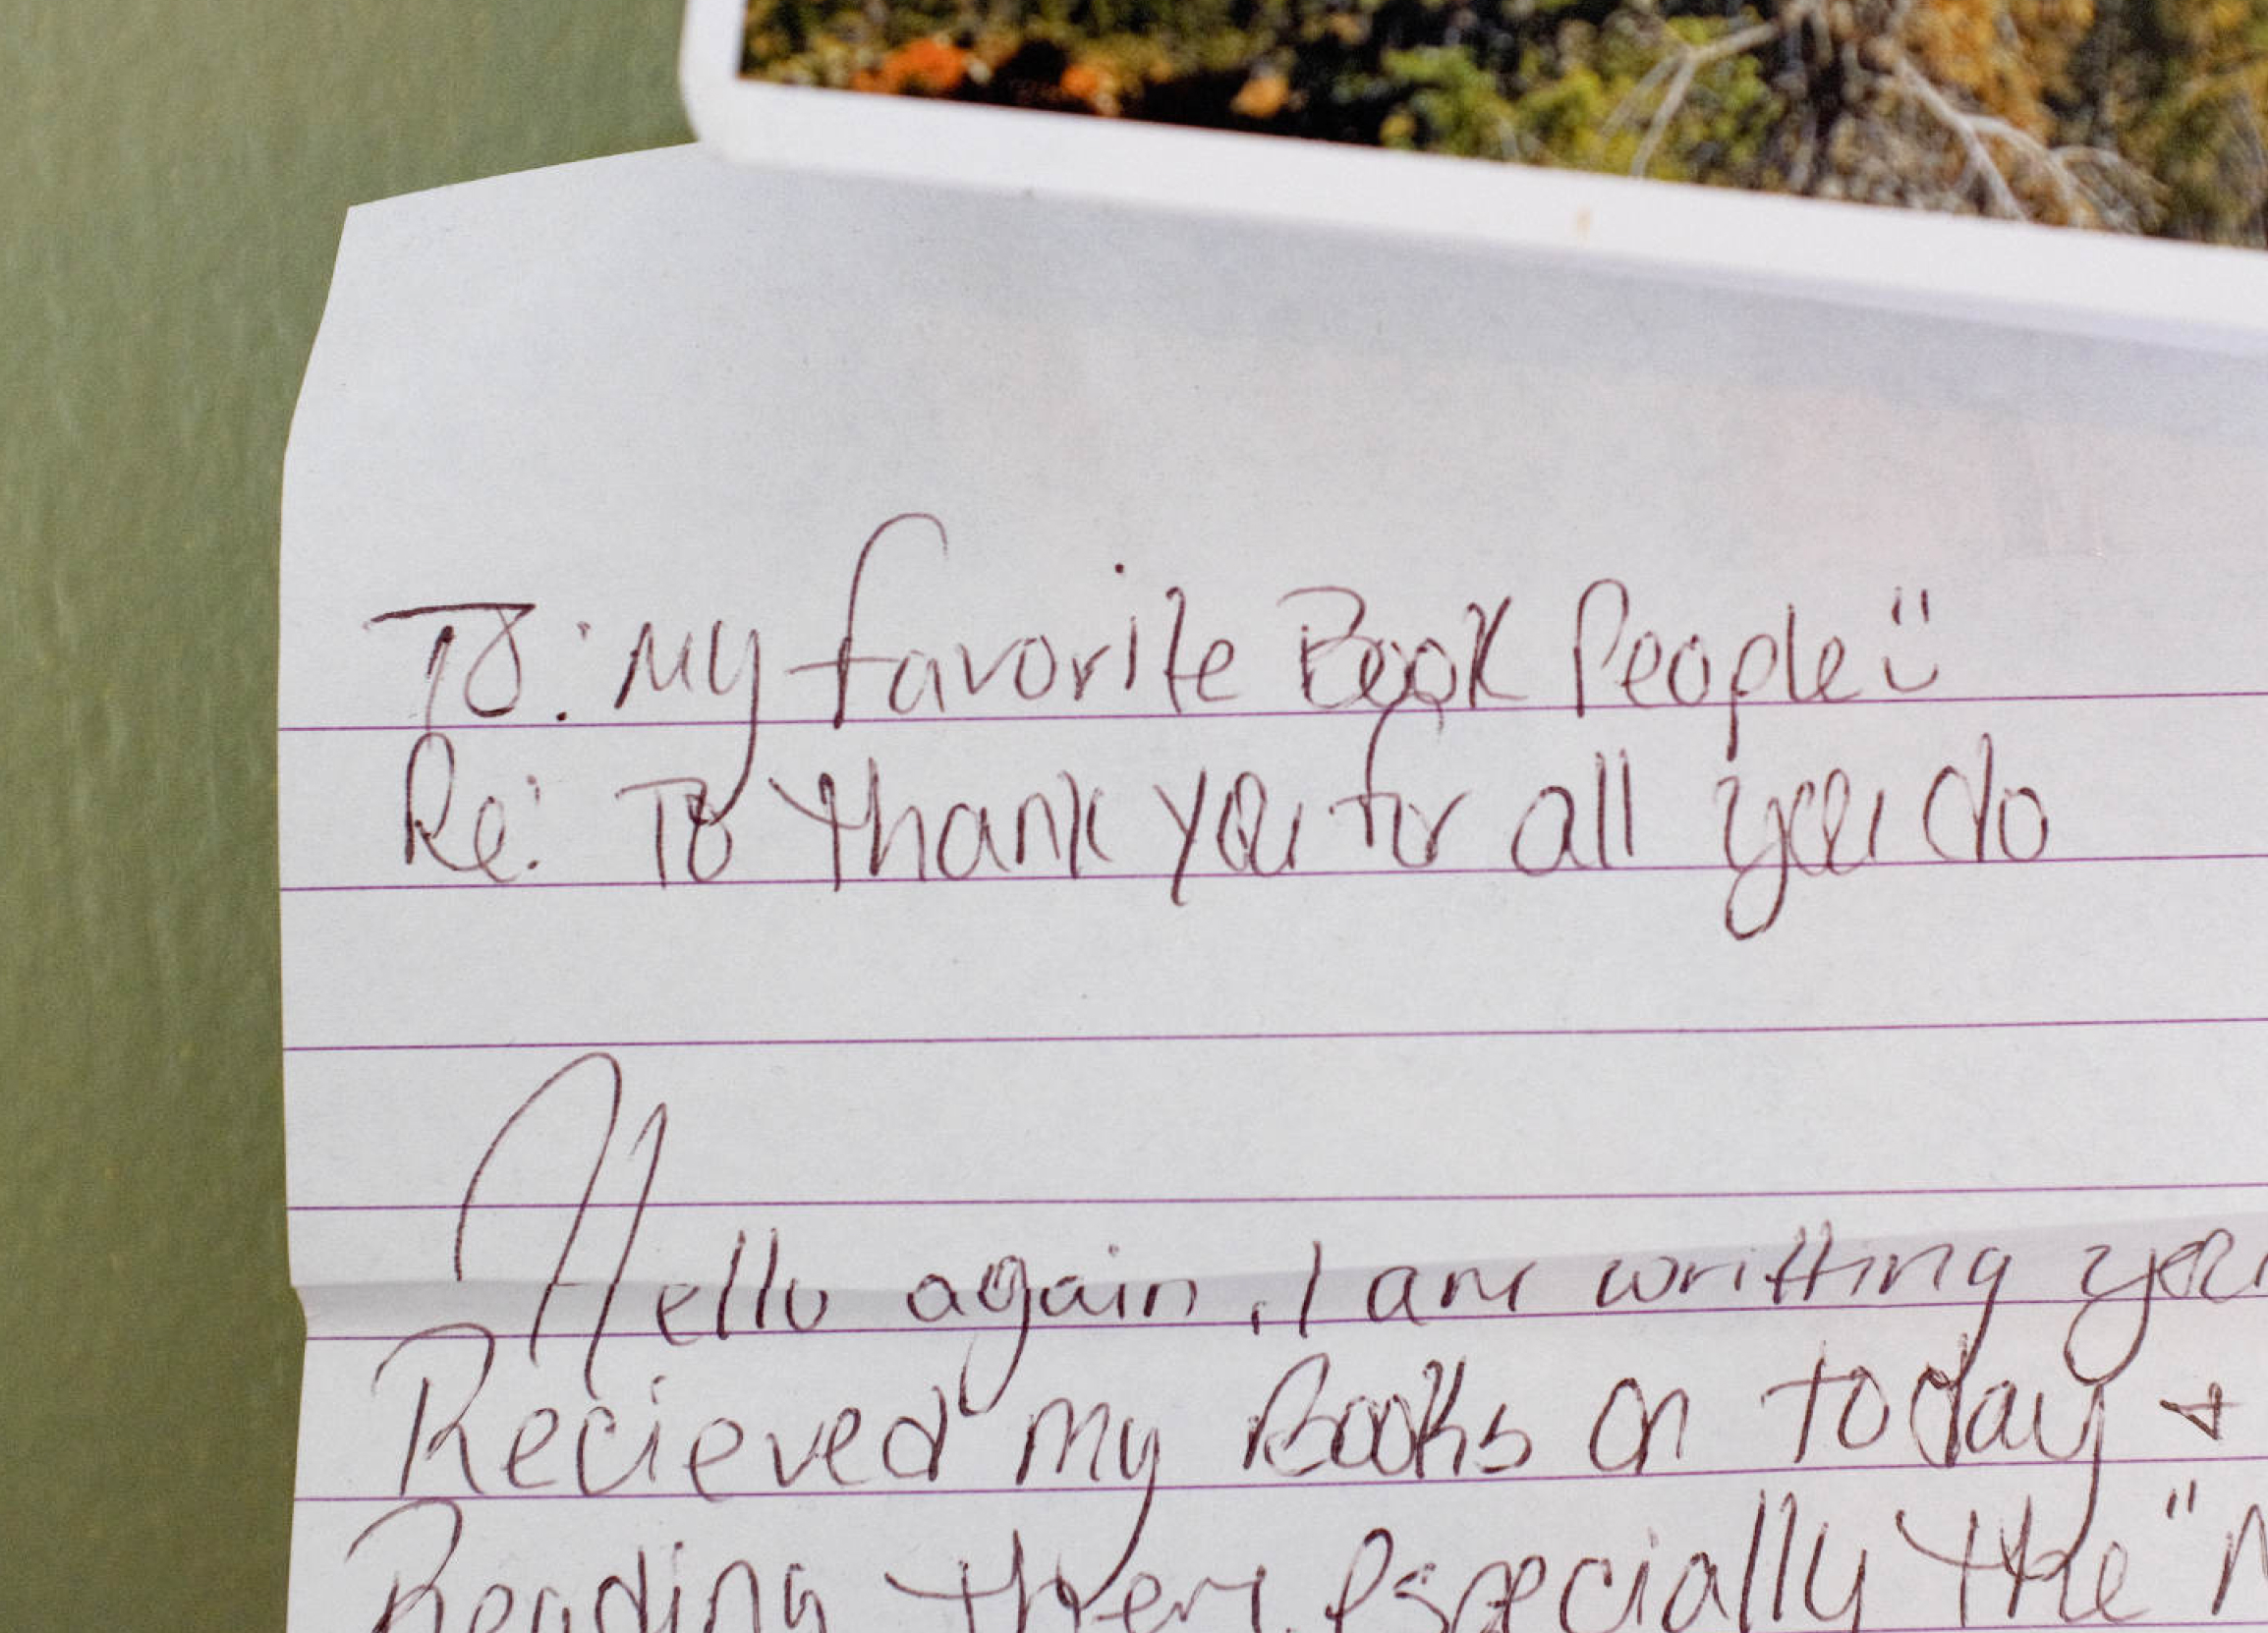 To: My favorite Book People ü
Re: To thank you for all you do
Hello again, I am writting you
Recieved my Books on today +
Reading them, especially the "